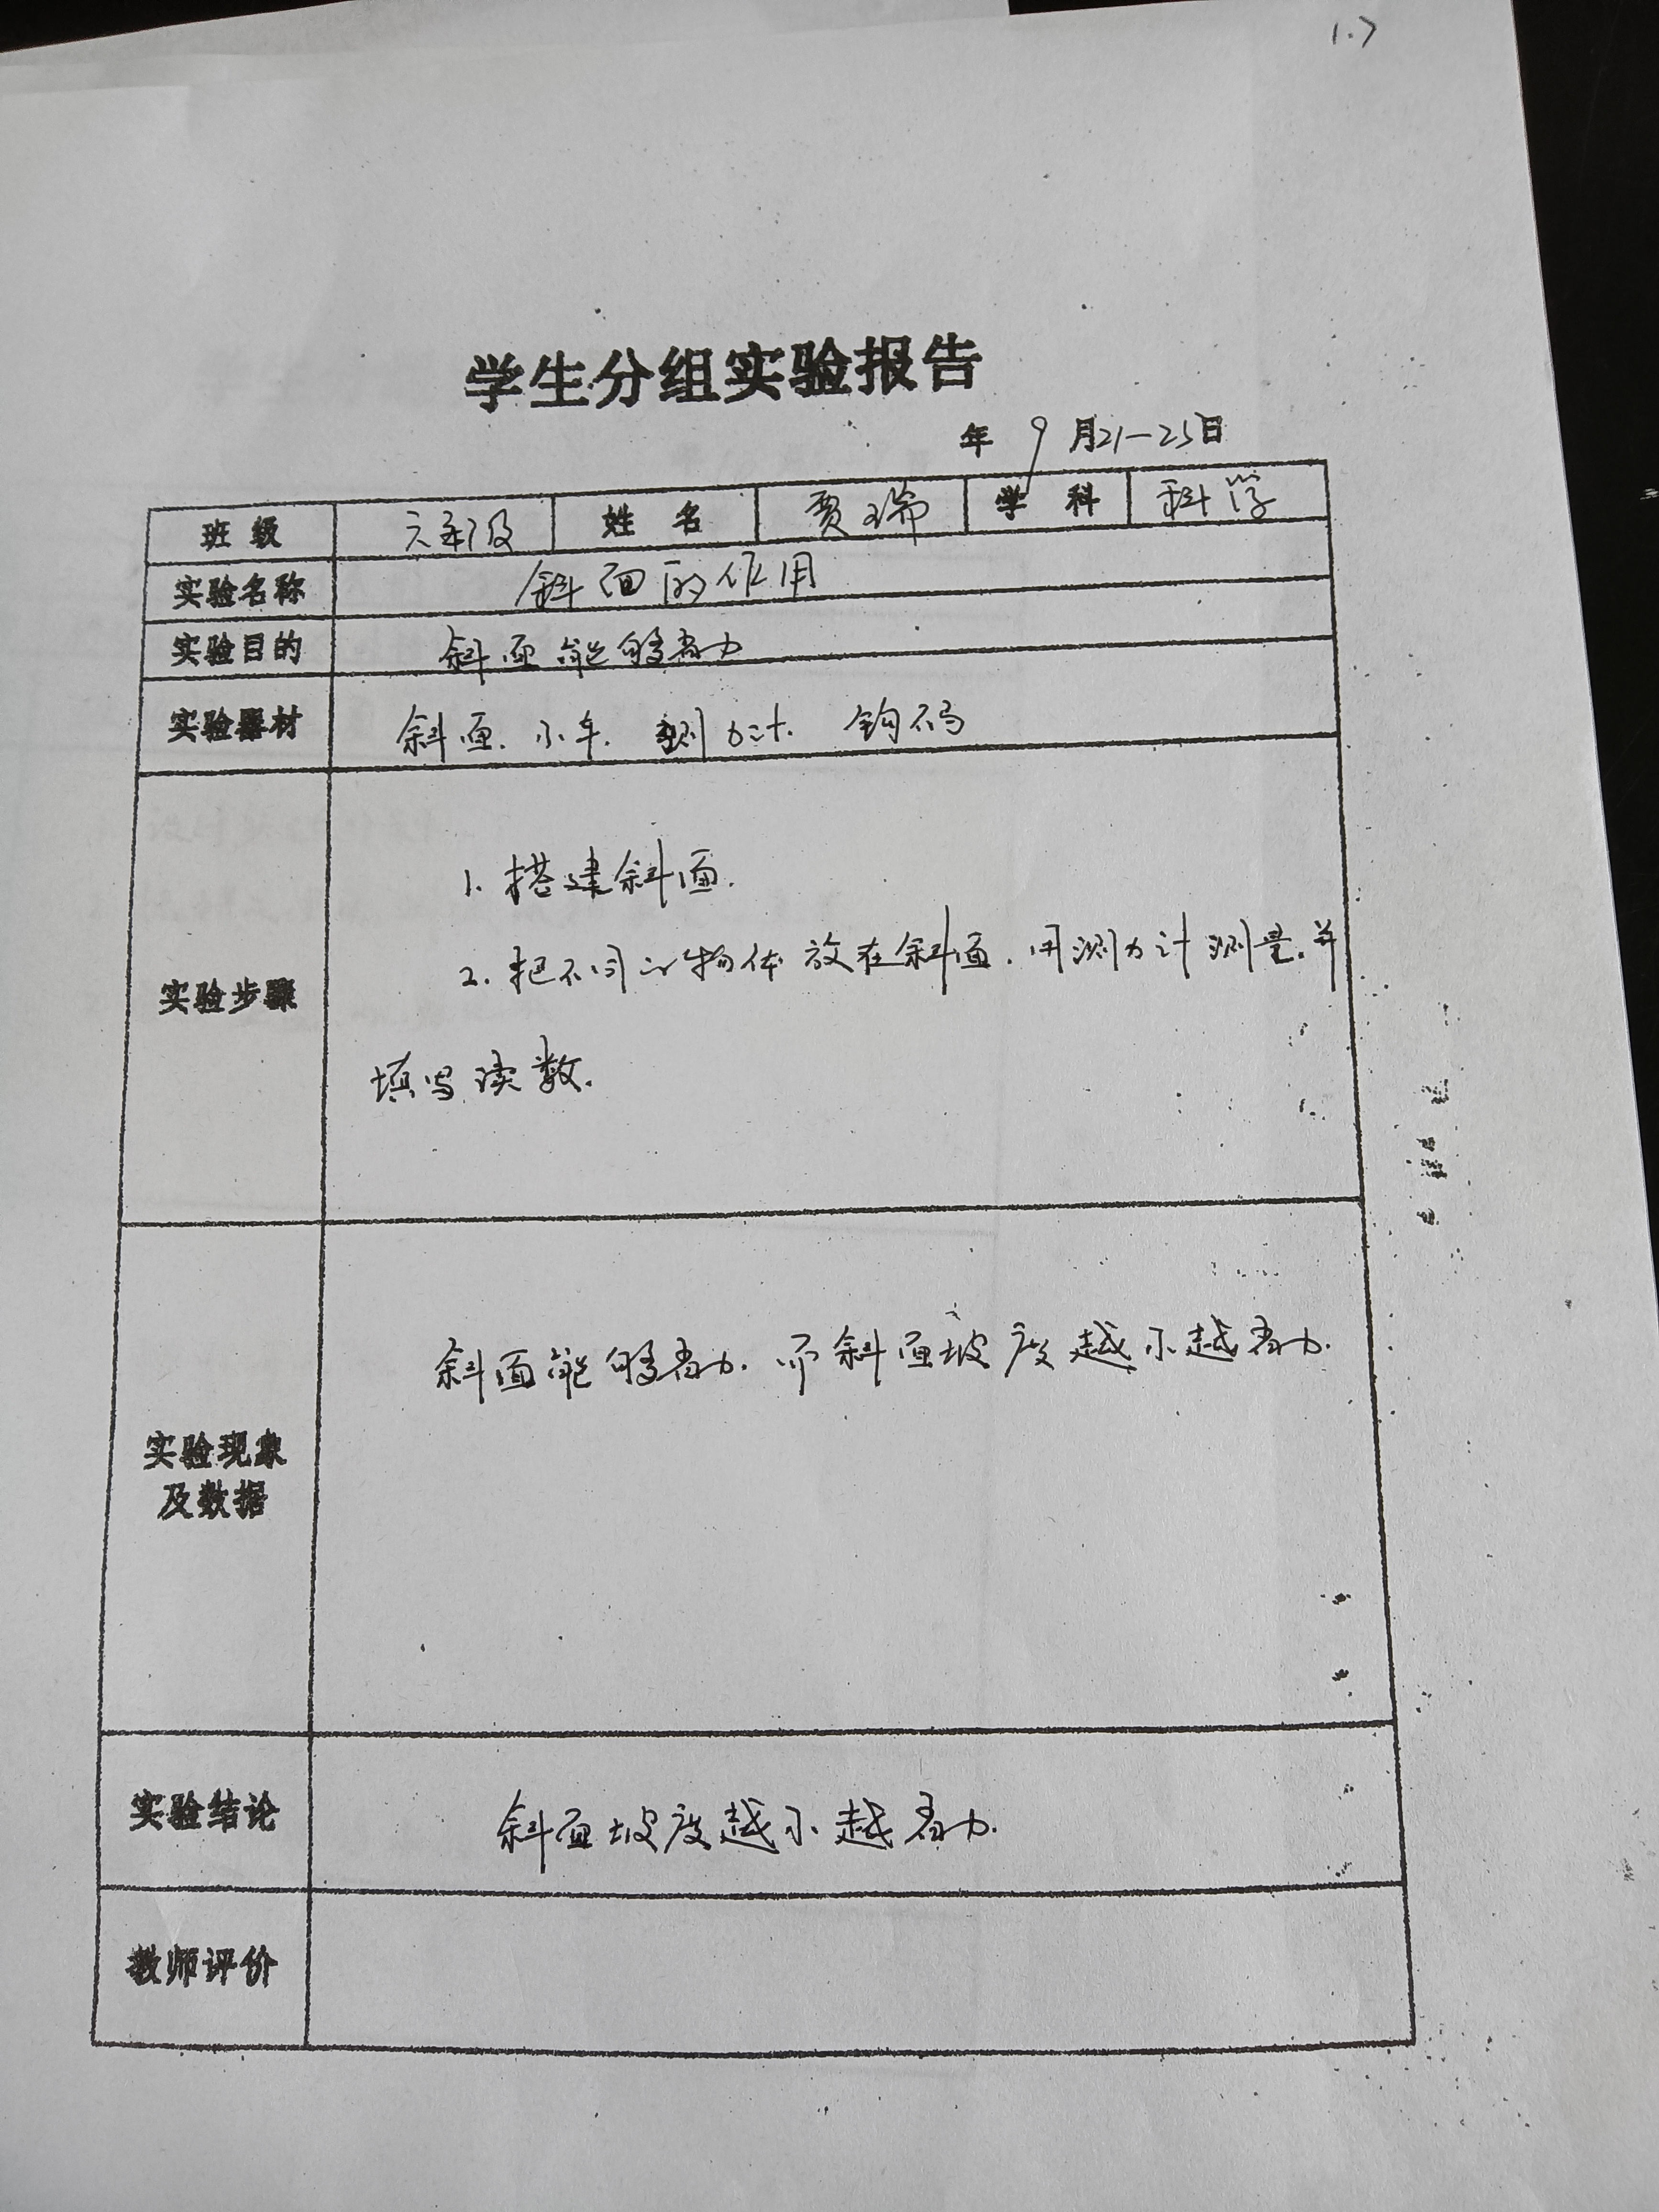 1.7
学生分组实验报告
年 9 月21—25日
班 级 六年级 姓 名 贾瑞 学 科 科学
实验名称 斜面的作用
实验目的 斜面能够省力
实验器材 斜面、小车、测力计、钩码
1. 搭建斜面.
2. 把不同的物体放在斜面,用测力计测量,并
实验步骤
填写读数.
斜面能够省力.而斜面坡度越小越省力.
实验现象
及数据
实验结论 斜面坡度越小越省力.
教师评价